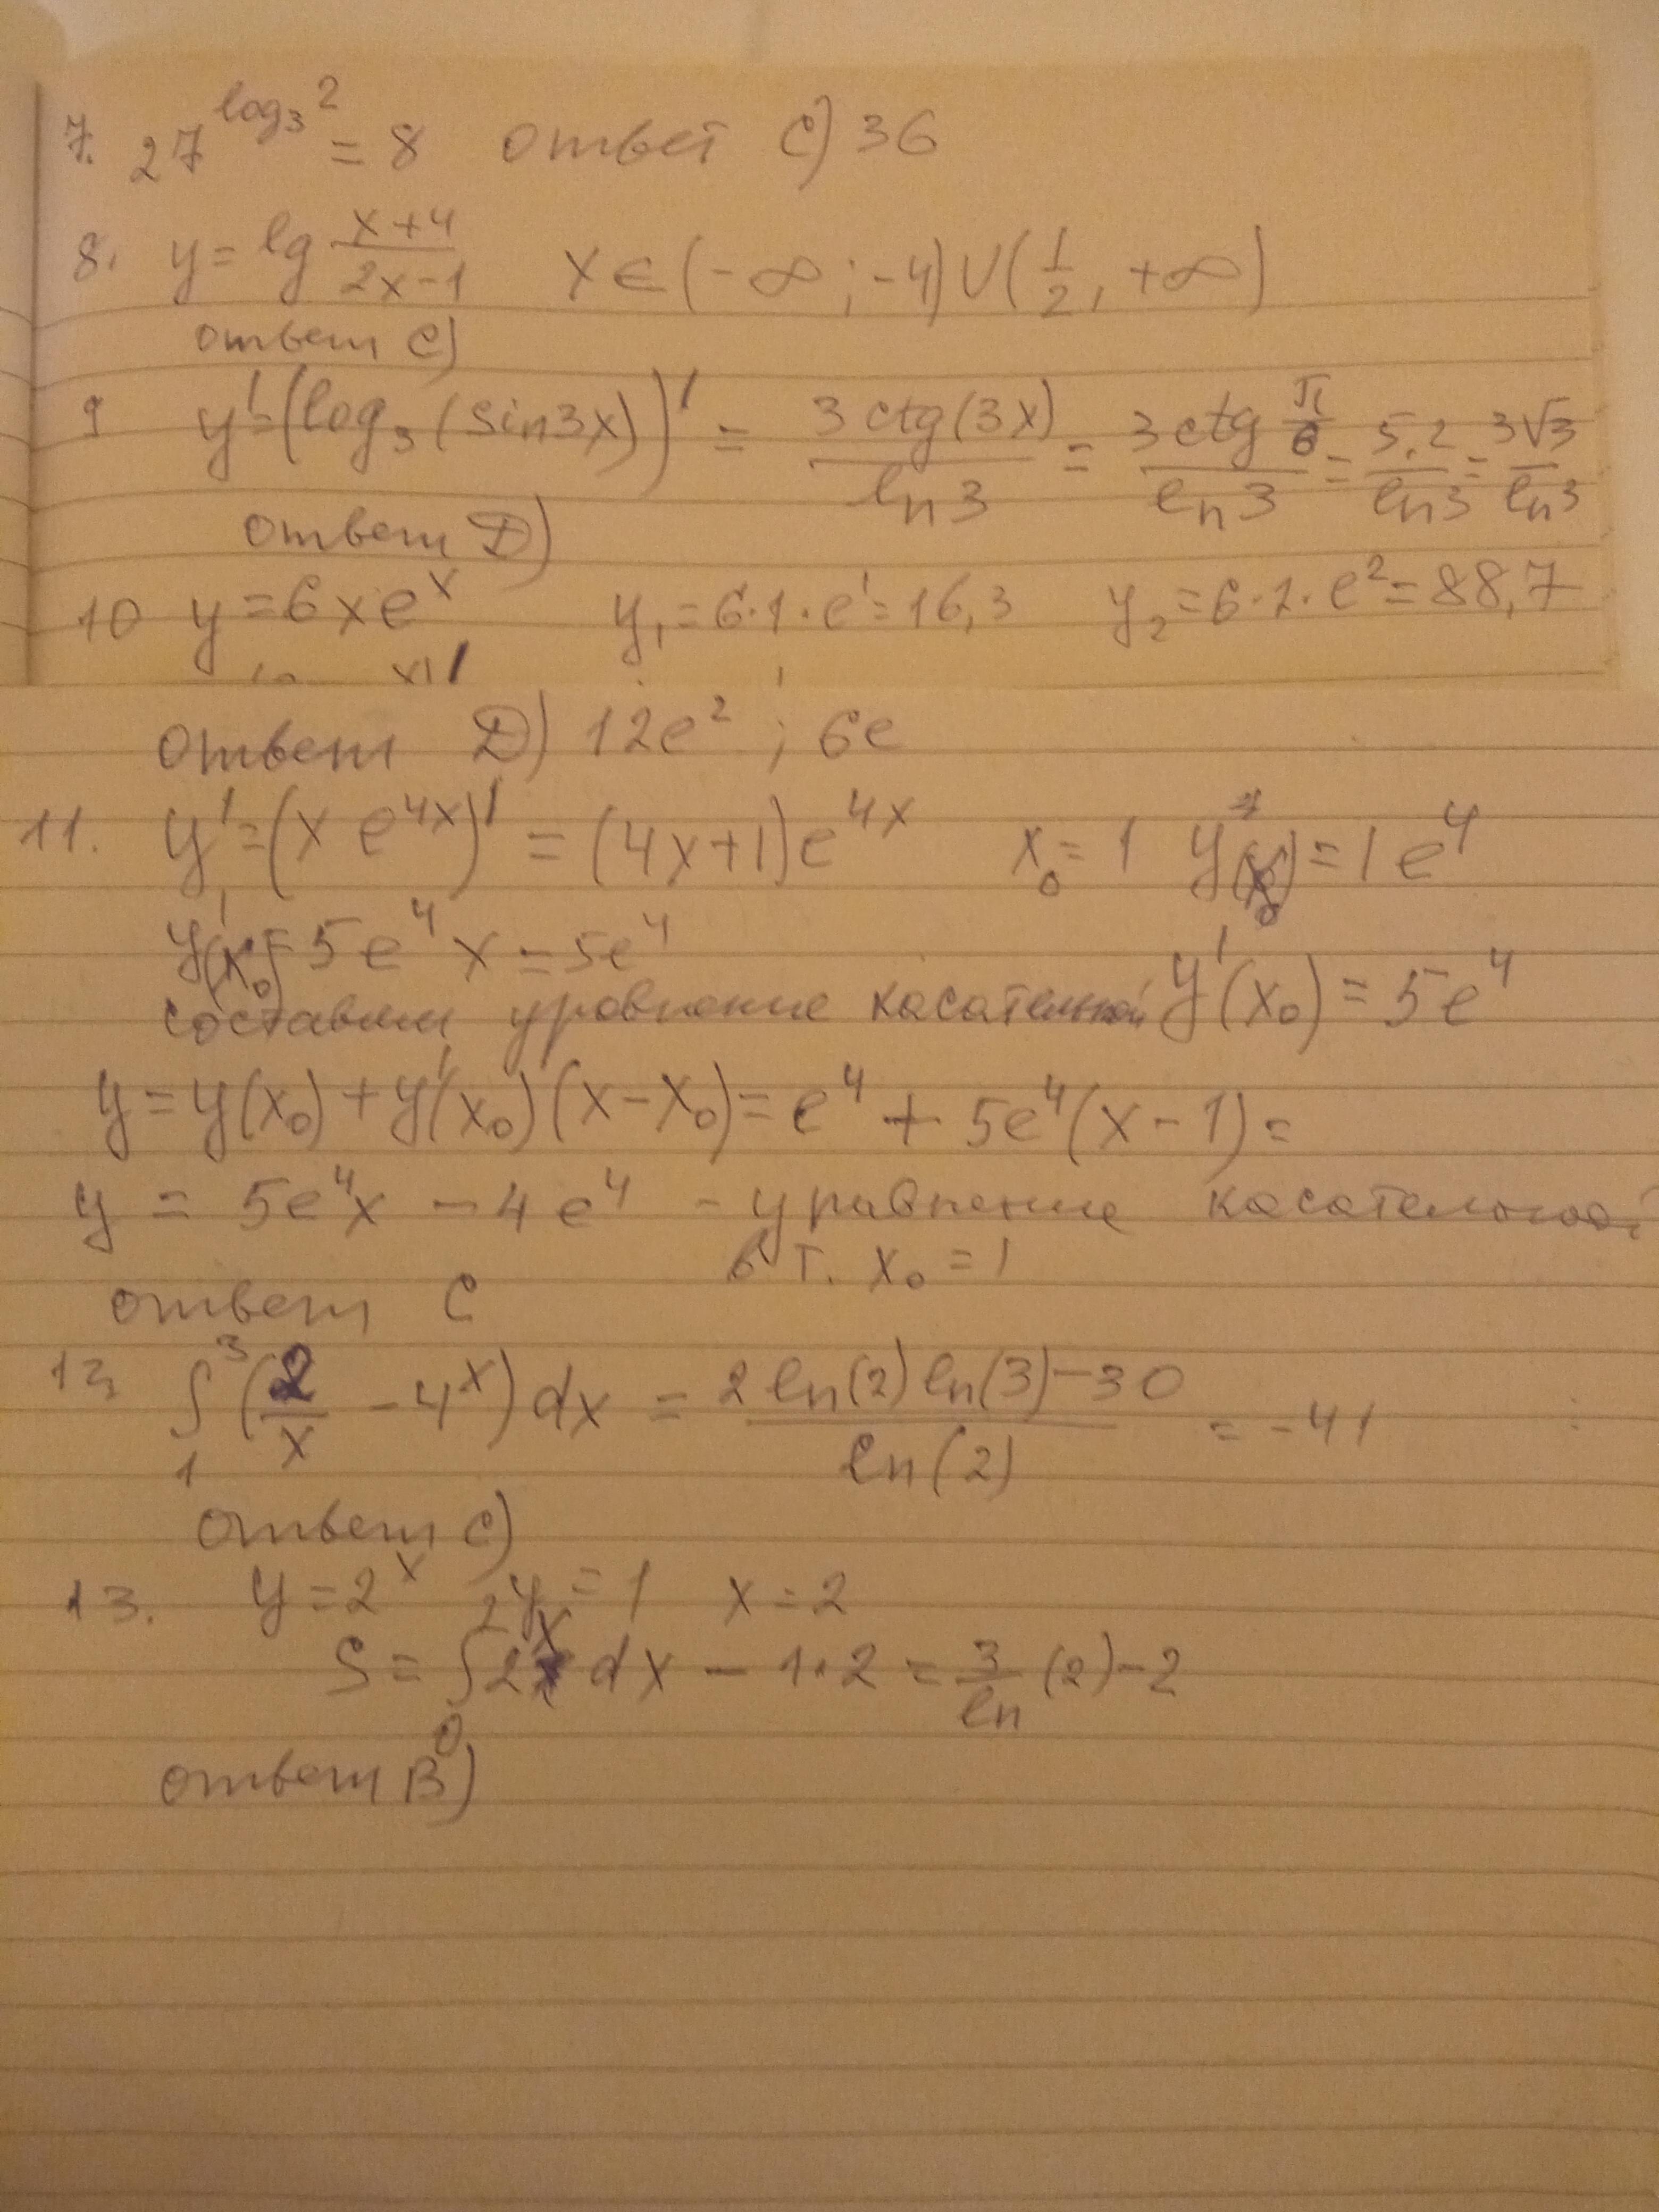 7. 27^log₃2 = 8 ответ C) 36
8. y = lg (x+4)/(2x-1) x ∈ (-∞; -4) ∪ (1/2, +∞)
ответ C)
9 y' = (log₃(sin3x))' = 3ctg(3x)/ln3 = 3ctg π/6 / ln3 = 5,2/ln3 = 3√3/ln3
ответ D)
10 y = 6xeˣ y₁ = 6·1·e¹ = 16,3 y₂ = 6·2·e² = 88,7
ответ D) 12e² ; 6e
11. y' = (x e⁴ˣ)' = (4x+1)e⁴ˣ x₀ = 1 y(x₀) = 1e⁴
y'(x₀) = 5e⁴x = 5e⁴
составим уравнение касательной y'(x₀) = 5e⁴
y = y(x₀) + y'(x₀)(x-x₀) = e⁴ + 5e⁴(x-1) =
y = 5e⁴x - 4e⁴ - уравнение касательной
в т. x₀ = 1
ответ C
12, ∫₁³ (2/x - 4ˣ) dx = (2ln(2)ln(3)-30)/ln(2) = -41
ответ C)
13. y = 2ˣ y = 1 x = 2
S = ∫₀² 2ˣ dx - 1·2 = 3/ln (2) - 2
ответ B)